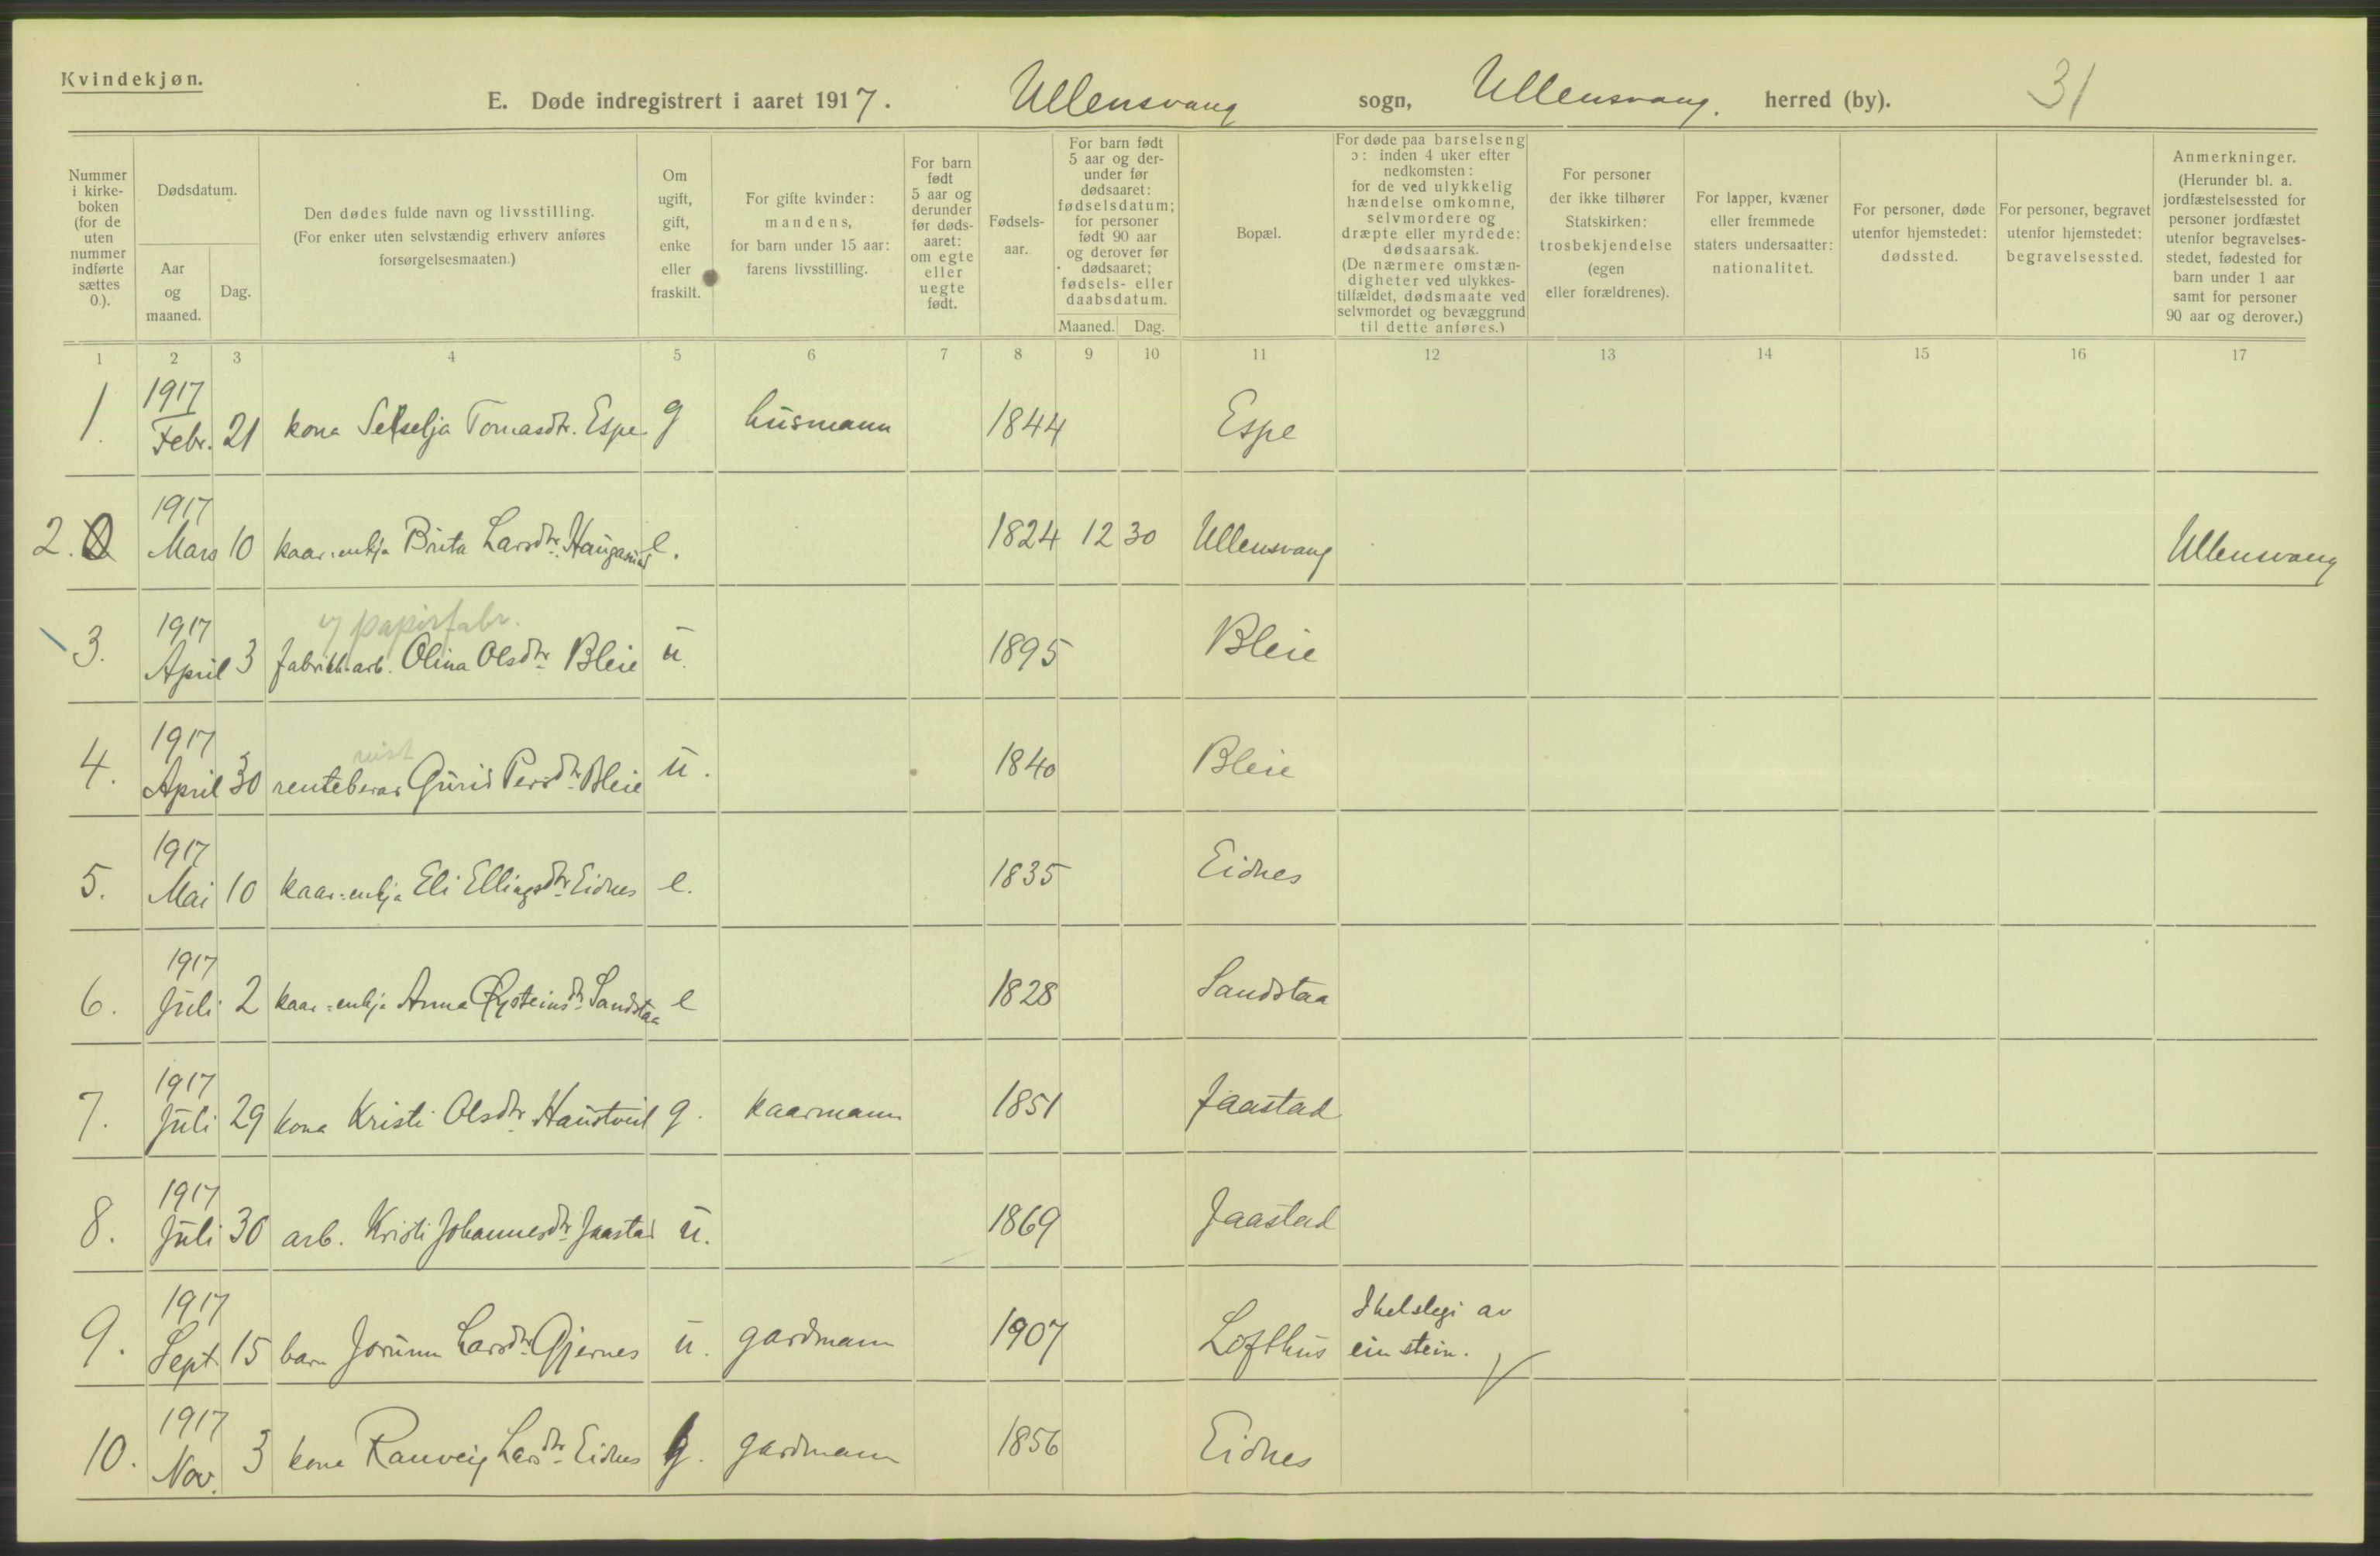 Kvindekjøn.
E. Døde indregistrert i aaret 1917. Ullensvang sogn, Ullensvang. herred (by). 31
Nummer i kirke-boken (for de uten nummer indførte sættes 0.).
Dødsdatum.
Aar og maaned.
Dag.
Den dødes fulde navn og livsstilling.
(For enker uten selvstændig erhverv anføres forsørgelsesmaaten.)
Om ugift, gift, enke eller fraskilt.
For gifte kvinder: mandens, for barn under 15 aar: farens livsstilling.
For barn født 5 aar og derunder før døds-aaret: om egte eller uegte født.
Fødsels-aar.
For barn født 5 aar og der-under før dødsaaret: fødselsdatum; for personer født 90 aar og derover før dødsaaret; fødsels- eller daabsdatum.
Maaned. Dag.
Bopæl.
For døde paa barselseng ɔ: inden 4 uker efter nedkomsten: for de ved ulykkelig hændelse omkomne, selvmordere og dræpte eller myrdede: dødsaarsak. (De nærmere omstæn-digheter ved ulykkes-tilfældet, dødsmaate ved selvmordet og bevæggrund til dette anføres.)
For personer der ikke tilhører Statskirken: trosbekjendelse (egen eller forældrenes).
For lapper, kvæner eller fremmede staters undersaatter: nationalitet.
For personer, døde utenfor hjemstedet: dødssted.
For personer, begravet utenfor hjemstedet: begravelsessted.
Anmerkninger. (Herunder bl. a. jordfæstelsessted for personer jordfæstet utenfor begravelses-stedet, fødested for barn under 1 aar samt for personer 90 aar og derover.)
1 2 3 4 5 6 7 8 9 10 11 12 13 14 15 16 17
1. 1917 Febr. 21 kona Selselja Tomasdtr. Espe. g husmann 1844 Espe
2. 0 1917 Mars 10 kaar-enkja Brita Larsdtr. e. 1824 12 30 Ullensvang Ullensvang
papirfabr.
3. 1917 April 3 fabrikkarb. Olina Olsdtr Bleie u. 1895 Bleie
4. 1917 April 30 renteberar Gurid Persdtr. Bleie u. 1840 Bleie
5. 1917 Mai 10 kaar-enkja Eli Ellingsdtr. Eidnes e. 1835 Eidnes
6. 1917 Juli 2 kaar-enkja Anna Øysteinsdtr. Sandstaa e 1828 Sandstaa
7. 1917 Juli 29 kona Kristi Olsdtr. Haustveit g. kaarmann 1851 Jaastad
8. 1917 Juli 30 arb. Kristi Johannesdtr. Jaastad u. 1869 Jaastad
9. 1917 Sept. 15 barn Jorunn Larsdtr. Gjernes u. gardmann 1907 Lofthus Ihelslegi av ein stein.
10. 1917 Nov. 3 kona Ranveig Larsdtr. Eidnes g. gardmann 1856 Eidnes